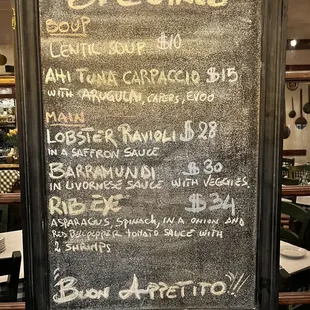 SPECIALS
SOUP
LENTIL SOUP $10
AHI TUNA CARPACCIO $15
WITH ARUGULA, CAPERS, EVOO
MAIN
LOBSTER RAVIOLI $28
IN A SAFFRON SAUCE
BARRAMUNDI $30
IN LIVORNESE SAUCE WITH VEGGIES
RIB EYE $34
ASPARAGUS, SPINACH, IN A ONION AND
RED BELLPEPPER TOMATO SAUCE WITH
2 SHRIMPS
BUON APPETITO!!